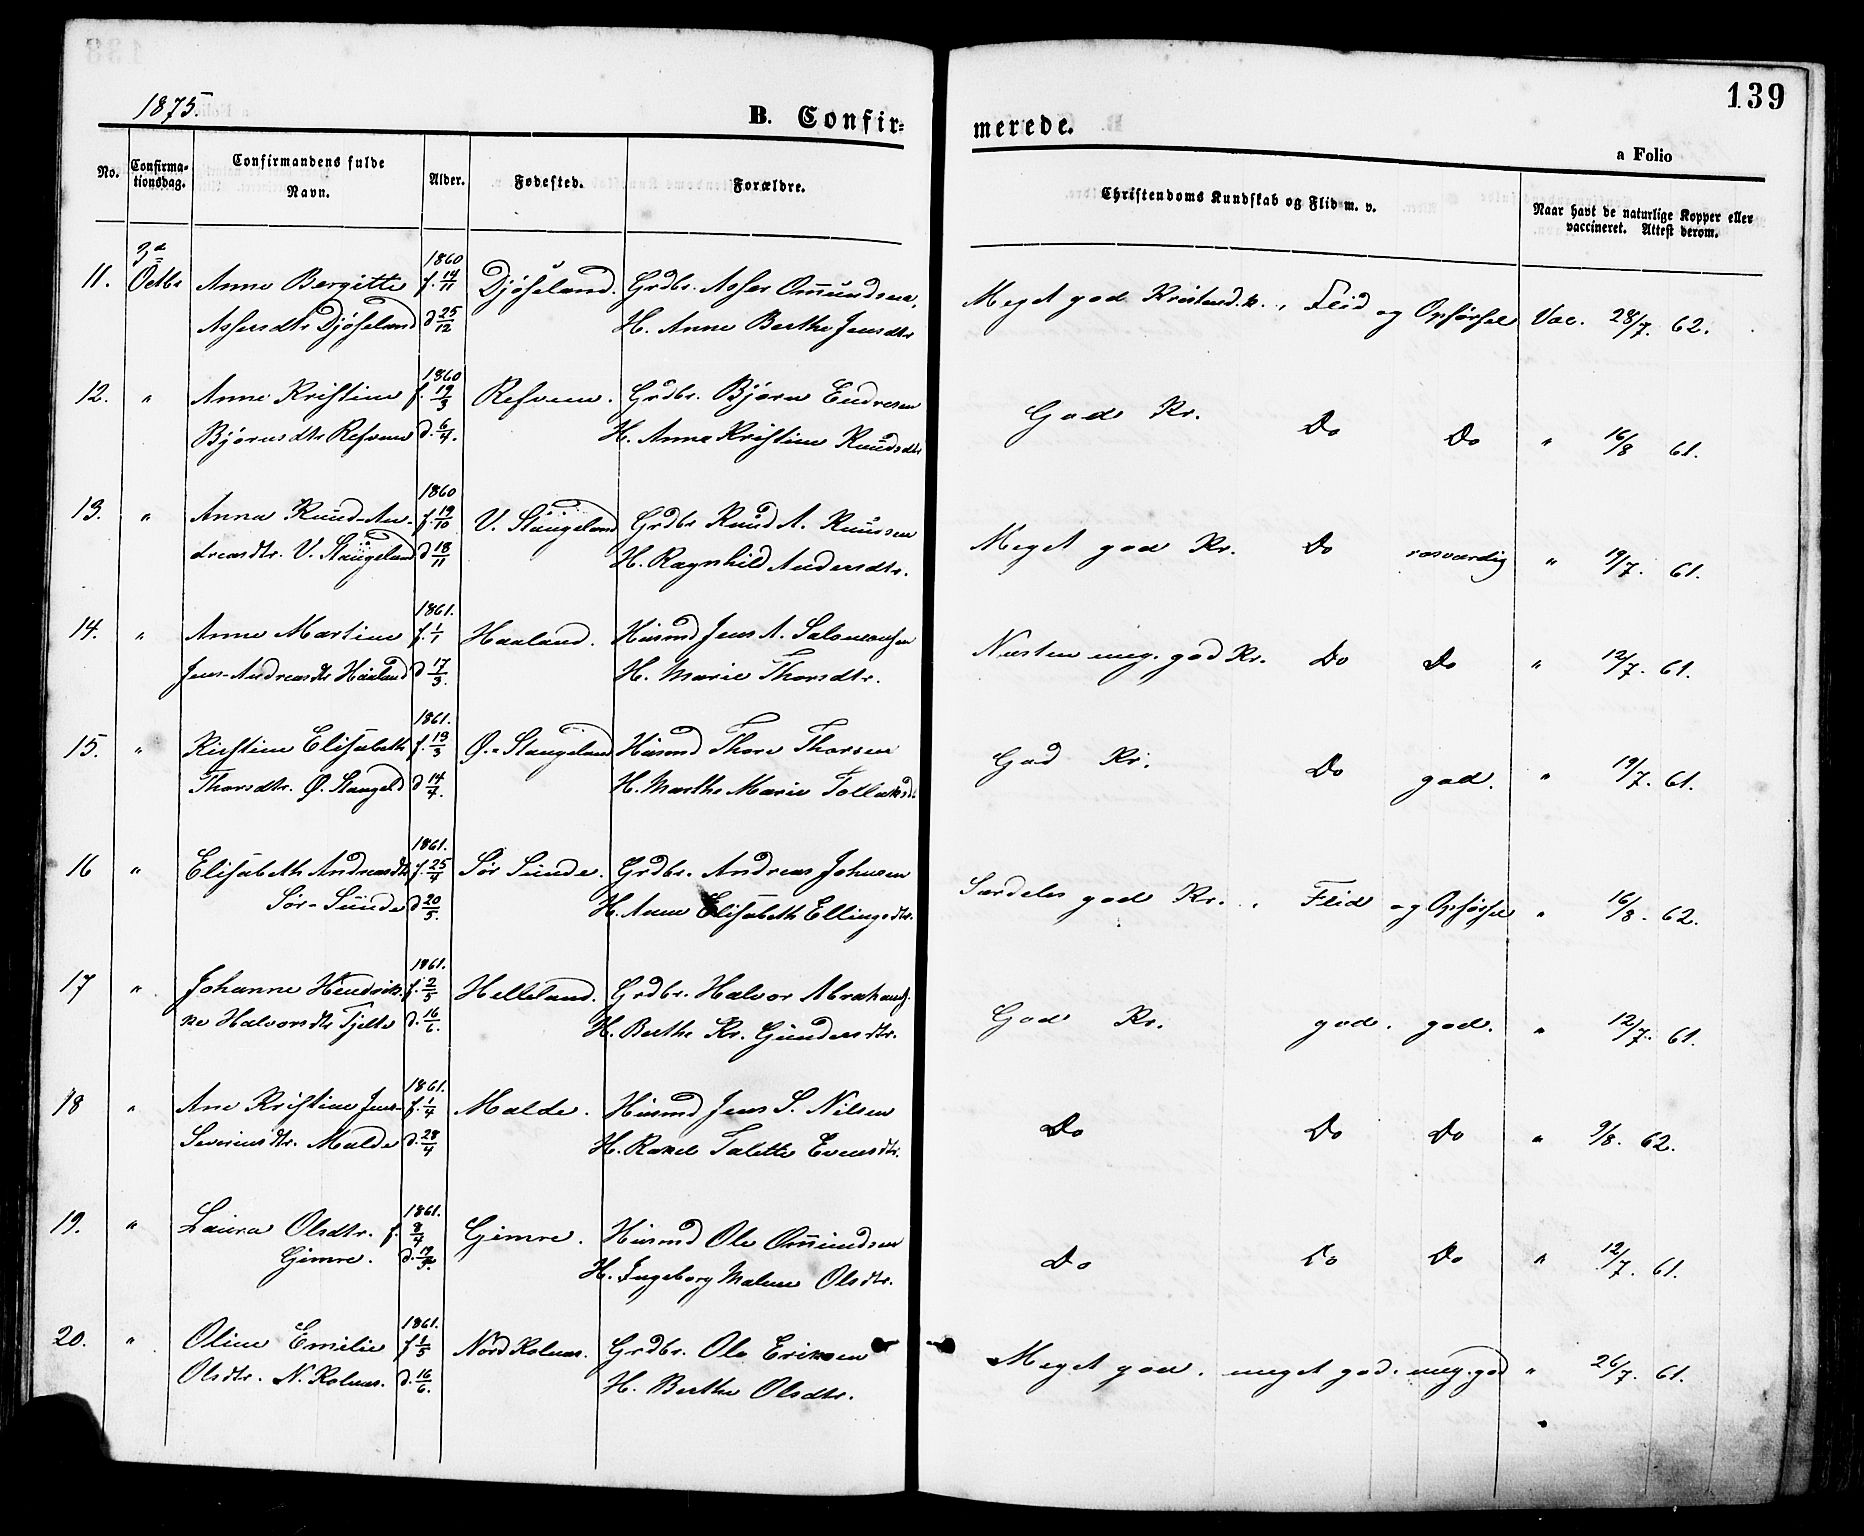 1875.
B. Confir-
merede.
139
a Folio
No.
Confirma-
tionsdag.
Confirmandens fulde
Navn.
Alder.
Fødested.
Forældre.
Christendoms Kundskab og Flid m. v.
Naar havt de naturlige Kopper eller
vaccineret. Attest derom.
11. 3d Octbr Anne Bergitte 1860 f. 14/11 Djøseland. Grdbr. Asser Omundsen, Meget god Kristend.k., Flid og Opførsel Vac. 28/7. 62.
Assersdtr Djøseland d 25/12 H. Anne Berthe Jensdtr
12. " Anne Kristine 1860 f. 19/3 Refvem. Grdbr. Bjørn Endresen God Kr. Do Do " 16/8 61.
Bjørnsdtr Refvem d. 6/4. H. Anne Kristine Knudsdtr
13. " Anna Knud-An- 1860 f. 19/10 V. Stangeland Grdbr Knud A. Knudsen Meget god Kr. Do rosværdig " 19/7. 61.
dreasdtr. V. Stangeland d 18/11 H. Ragnhild Andersdtr.
14. " Anne Martine 1861. f. 1/1 Haaland. Husmd Jens A. Salomonsen Næsten meg. god Kr. Do Do " 12/7. 61.
Jens-Andreasdtr Haaland d 17/3. H. Marie Thorsdtr.
15. " Kirstine Elisabeth 1861. f. 13/3 Ø. Stangeland Husmd Thore Thorsen God Kr. Do god. " 19/7. 61.
Thorsdtr. Ø. Stangeld d 14/4. H. Marthe Marie Tollaksd.
16 " Elisabeth Andreasdtr 1861. f. 25/4 Sør Sunde. Grdbr. Andreas Johnsen Særdeles god Kr., Flid og Opførsel " 16/8. 62.
Sør-Sunde d 20/5. H. Anne Elisabeth Ellingsdtr.
17 " Johanne Hendrik- 1861. f. 2/5 Helleland. Grdbr. Halvor Abrahams. God Kr. god. god. " 12/7. 61.
ke Halvorsdtr Tjelte d. 16/6. H. Berthe Kr. Gundersdtr.
18 " Ane Kristine Jens- 1861. f. 1/4 Malde. Husmd Jens S. Nilsen Do Do Do " 9/8. 62.
Severinsdtr. Malde d. 28/4 H. Rakel Talette Evensdtr.
19. " Laura Olsdtr. 1861. f. 8/4 Gimre. Husmd Ole Omundsen Do Do Do " 12/7. 61.
Gimre. d. 19/5. H. Ingeborg Malene Olsdtr.
20. " Oline Emilie 1861. f 1/5 Nord Kolnes. Grdbr. Ole Eriksen Meget god. meget god. meg. god " 26/7. 61.
Olsdtr. N. Kolnes. d. 16/6. H. Berthe Olsdtr.